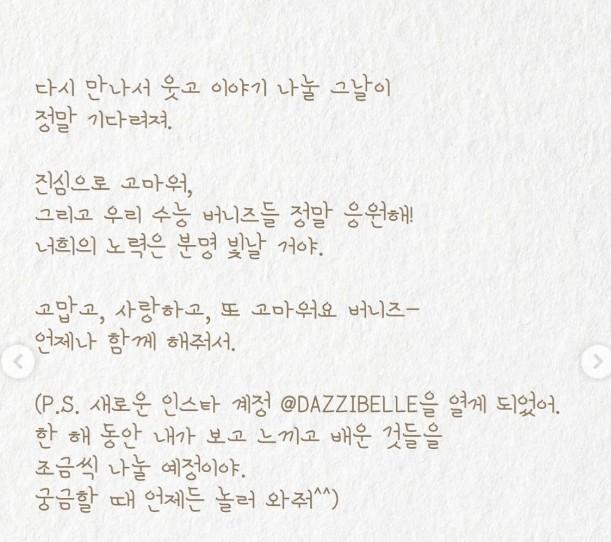 다시 만나서 웃고 이야기 나눌 그날이
정말 기다려져.
진심으로 고마워,
그리고 우리 수능 버니즈들 정말 응원해!
너희의 노력은 분명 빛날 거야.
고맙고, 사랑하고, 또 고마워요 버니즈-
언제나 함께 해줘서.
(P.S. 새로운 인스타 계정 @DAZZIBELLE을 열게 되었어.
한 해 동안 내가 보고 느끼고 배운 것들을
조금씩 나눌 예정이야.
궁금할 때 언제든 놀러 와줘^^)